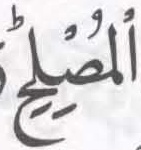 الْمُصْلِحِؕ